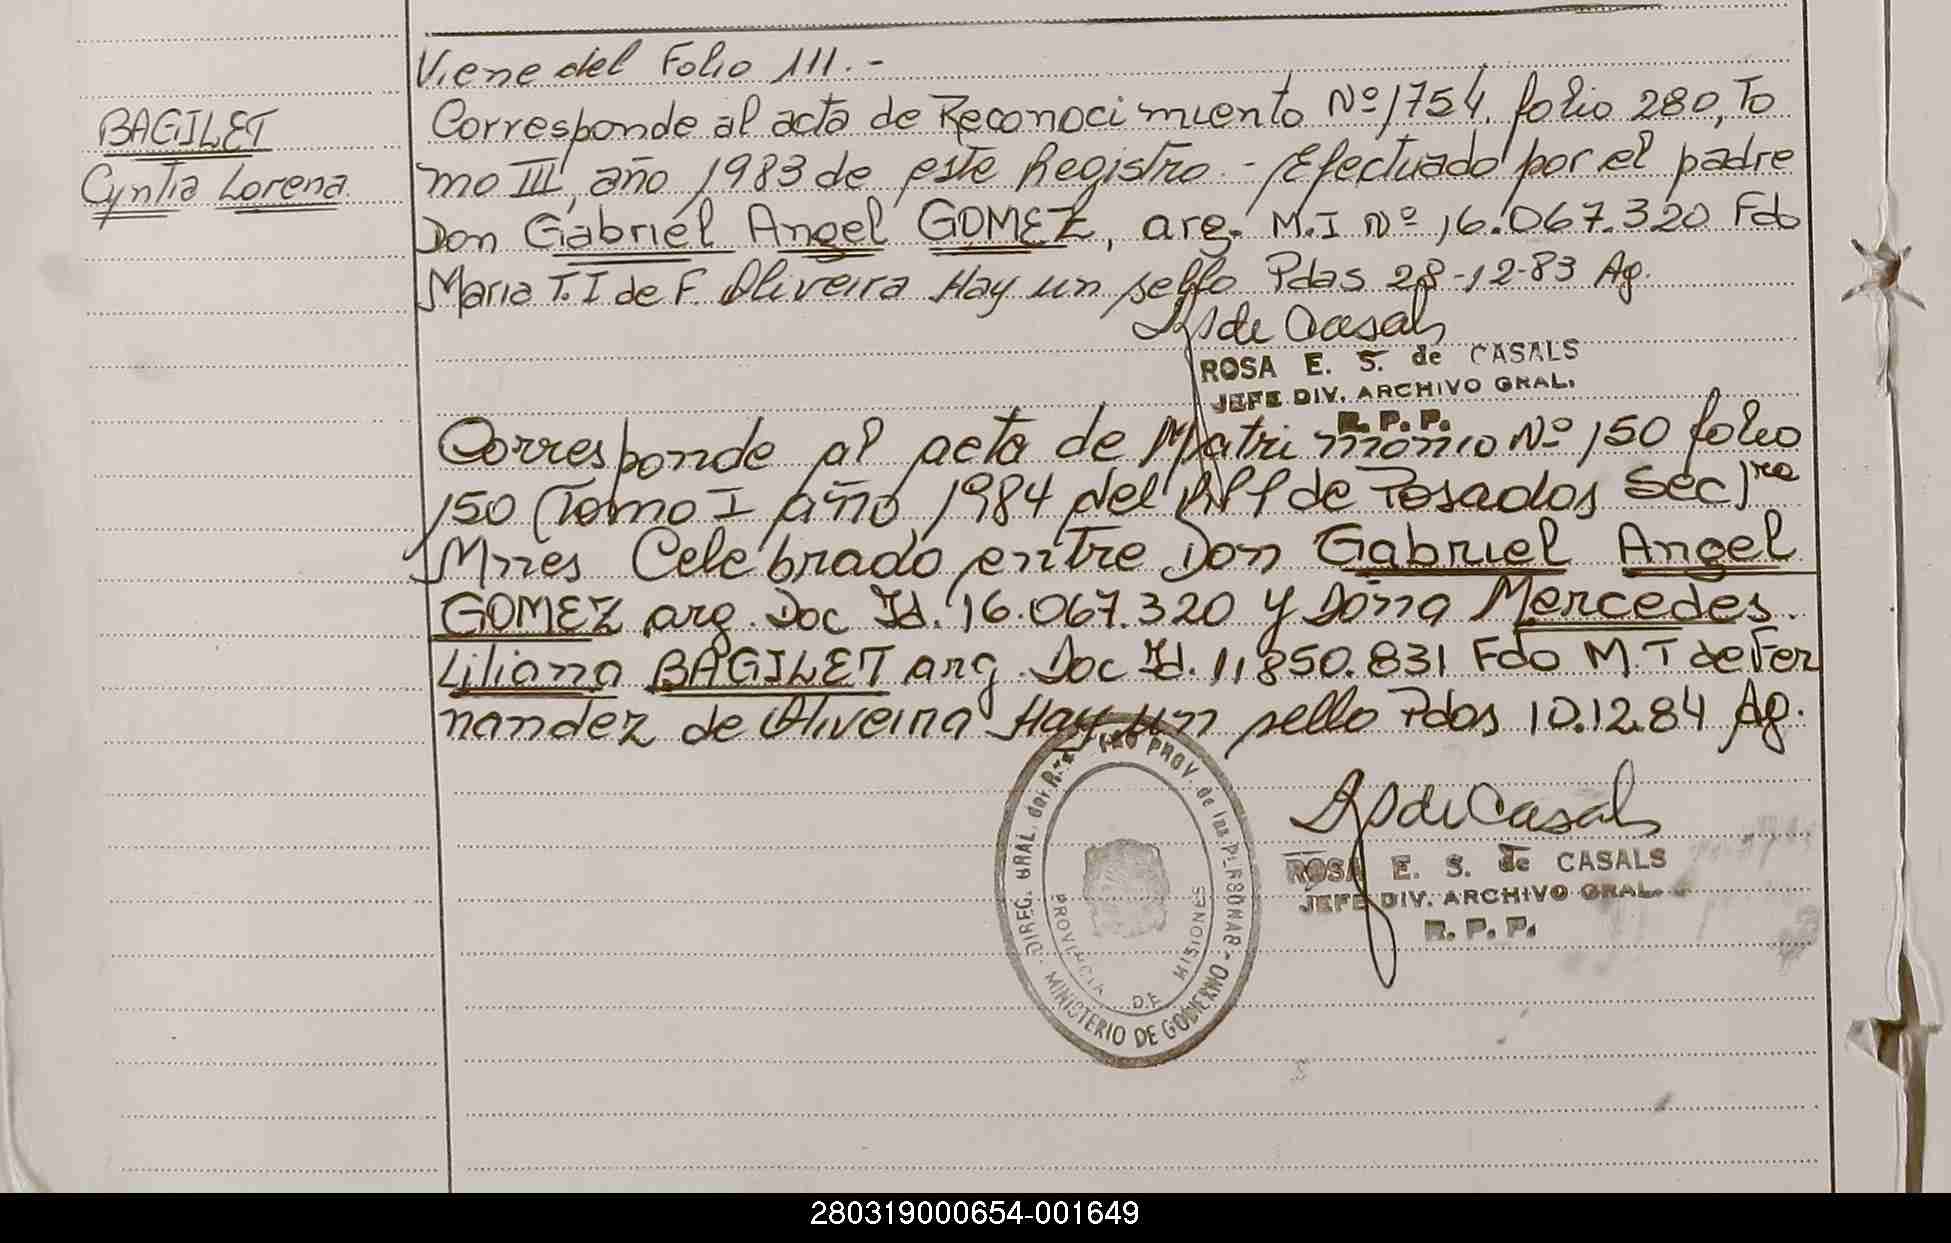 Viene del Folio 111.-
BAGILET
Cyntia Lorena.
Corresponde al acta de Reconocimiento Nº 1754, folio 280, To
mo III, año 1983 de este Registro.- Efectuado por el padre
Don Gabriel Angel GOMEZ, arg. M.I Nº 16.067.320 Fdo
Maria T. I de F. Oliveira Hay un sello Pdas 28-12-83 Ag.
ROSA E. S. de CASALS
JEFE DIV. ARCHIVO GRAL.
R. P. P.
Corresponde al acta de Matrimonio Nº 150 folio
150 Tomo I año 1984 del RPP de Posadas Sec 1ra
Mnes Celebrado entre Don Gabriel Angel
GOMEZ arg. Doc Id. 16.067.320 y Doña Mercedes
Liliana BAGILET arg. Doc Id. 11.850.831 Fdo M. T de Fer
nandez de Oliveira Hay un sello Pdas 10.12.84 Ag.
ROSA E. S. de CASALS
JEFE DIV. ARCHIVO GRAL.
R. P. P.
DIREC. GRAL. del PROV. de las PERSONAS
MINISTERIO DE GOBIERNO
PROVINCIA DE MISIONES
280319000654-001649